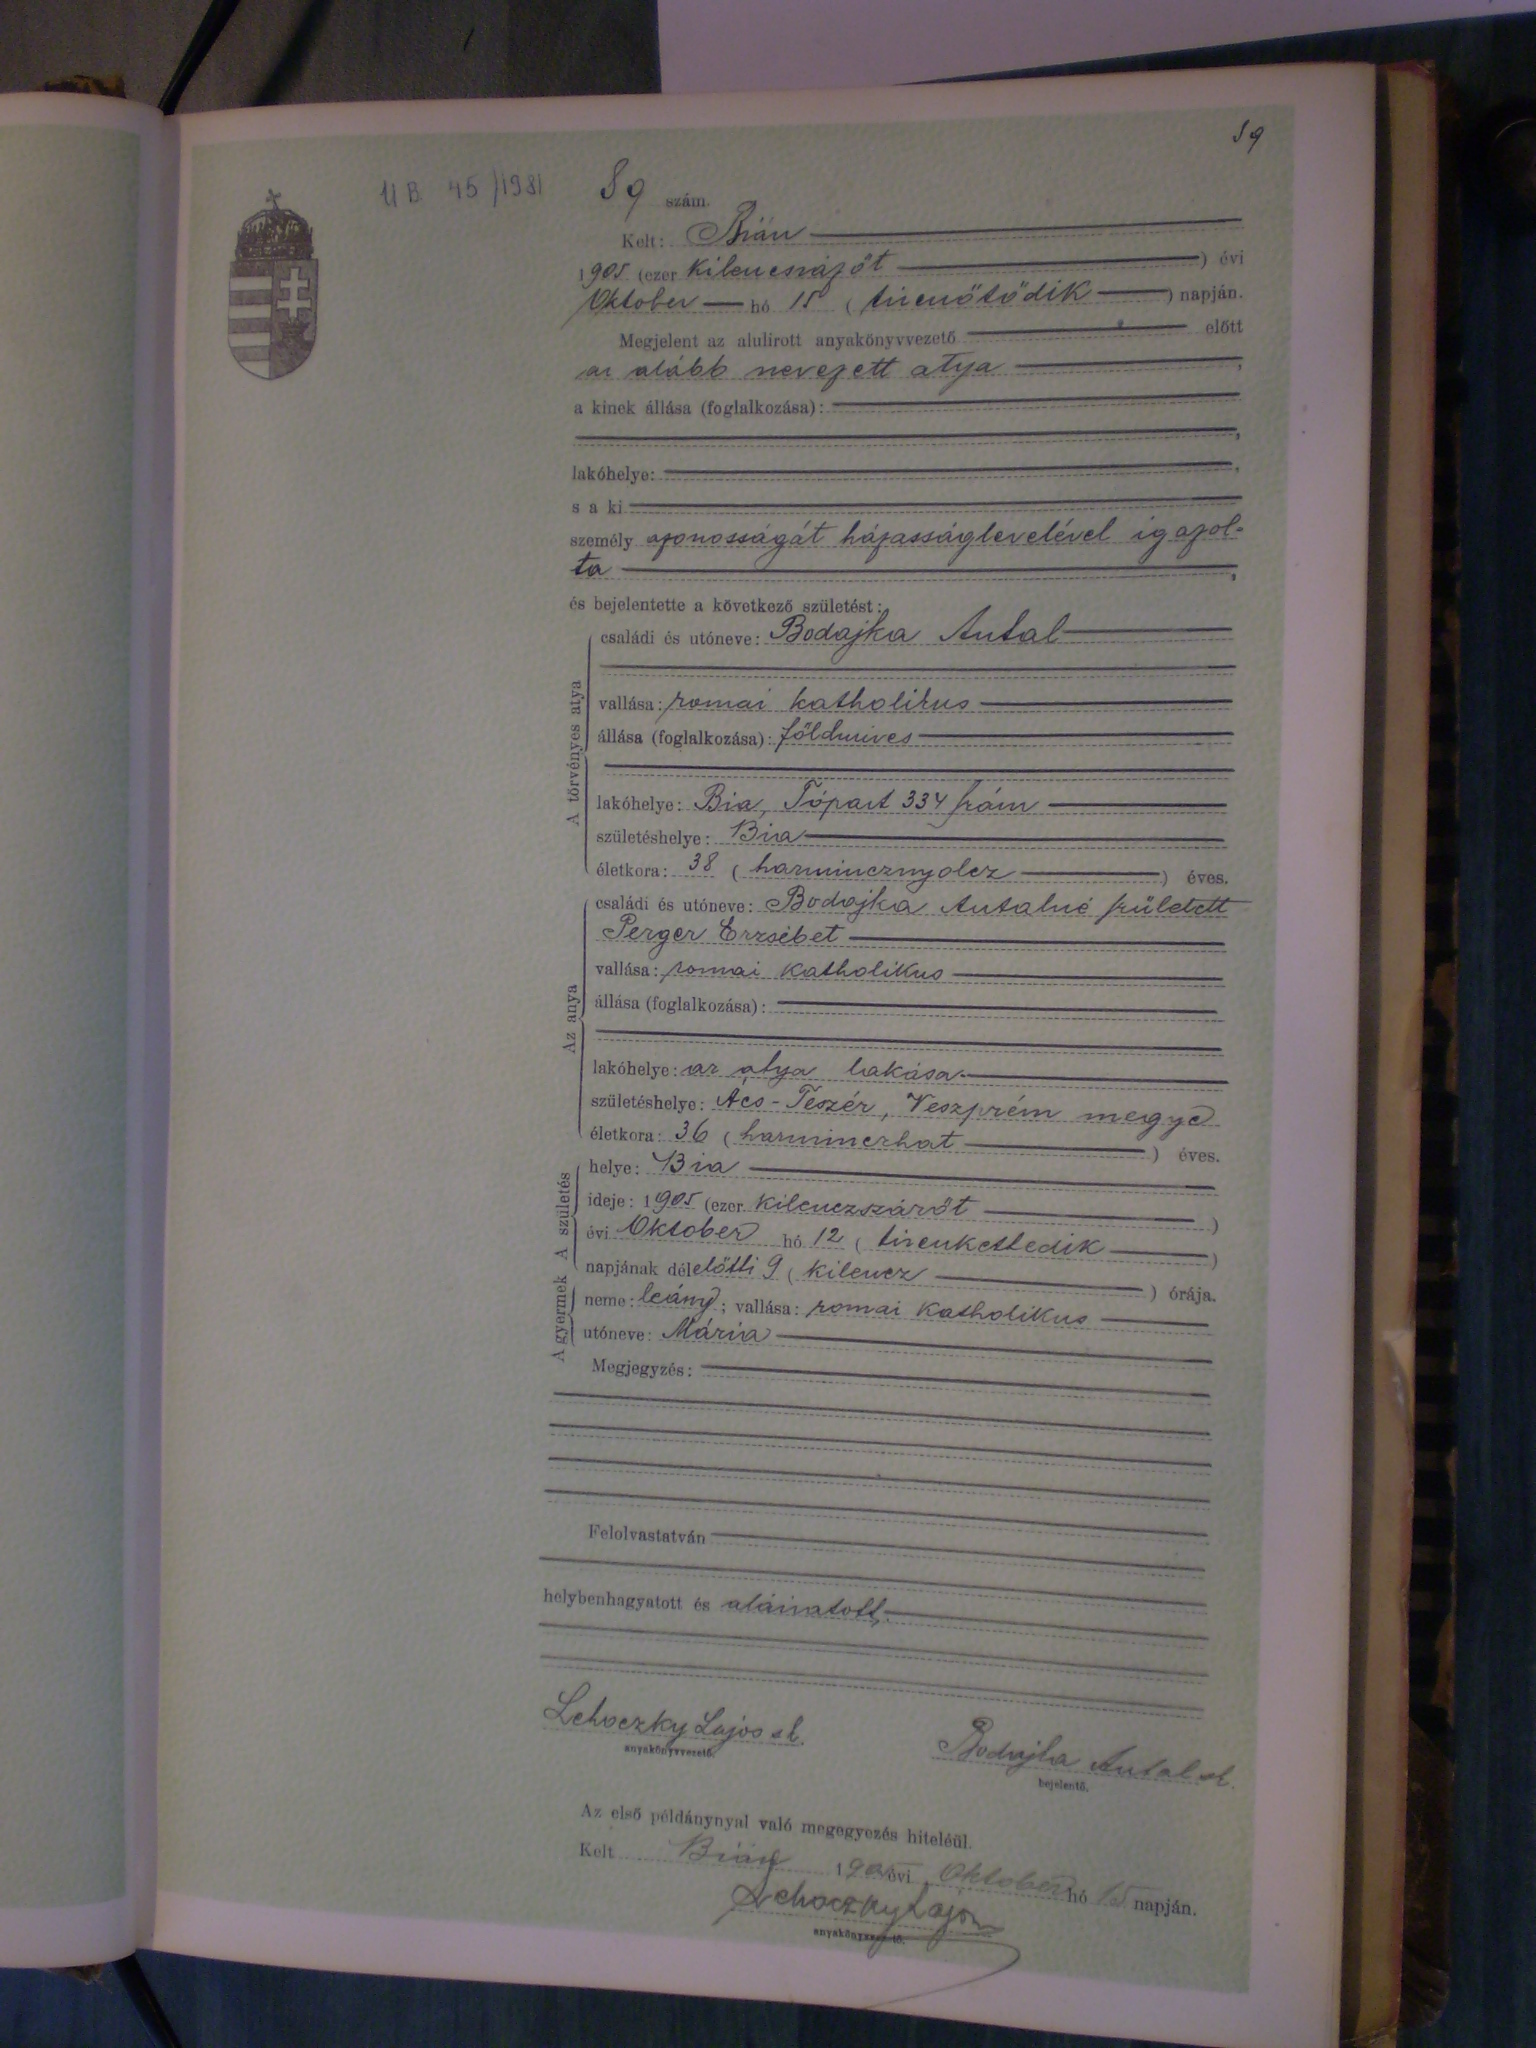 89
UB 45/1981
89 szám.
Kelt: Bián
1905 (ezer kilenczszázöt) évi
Oktober hó 15 (tizenötödik) napján.
Megjelent az alulirott anyakönyvvezető előtt
az alább nevezett atya,
a kinek állása (foglalkozása):
lakóhelye:
s a ki
személy azonosságát házasságlevelével igazol-
ta,
és bejelentette a következő születést:
A törvényes atya
családi és utóneve: Bodajka Antal
vallása: romai katholikus
állása (foglalkozása): földmives
lakóhelye: Bia, Tópart 334 szám
születéshelye: Bia
életkora: 38 (harmincznyolcz) éves.
Az anya
családi és utóneve: Bodajka Antalné született
Perger Erzsébet
vallása: romai katholikus
állása (foglalkozása):
lakóhelye: az atya lakása
születéshelye: Ács-Teszér, Veszprém megye
életkora: 36 (harminczhat) éves.
A születés
helye: Bia
ideje: 1905 (ezer kilenczszázöt)
évi Oktober hó 12 (tizenkettedik)
napjának délelőtti 9 (kilencz) órája.
A gyermek
neme: leány; vallása: romai katholikus
utóneve: Mária
Megjegyzés:
Felolvastatván
helybenhagyatott és aláiratott.
Lehoczky Lajos sk.
anyakönyvvezető.
Bodajka Antal sk.
bejelentő.
Az első példánynyal való megegyezés hiteléül.
Kelt Bián 1905 évi Oktober hó 15 napján.
Lehoczky Lajos
anyakönyvvezető.